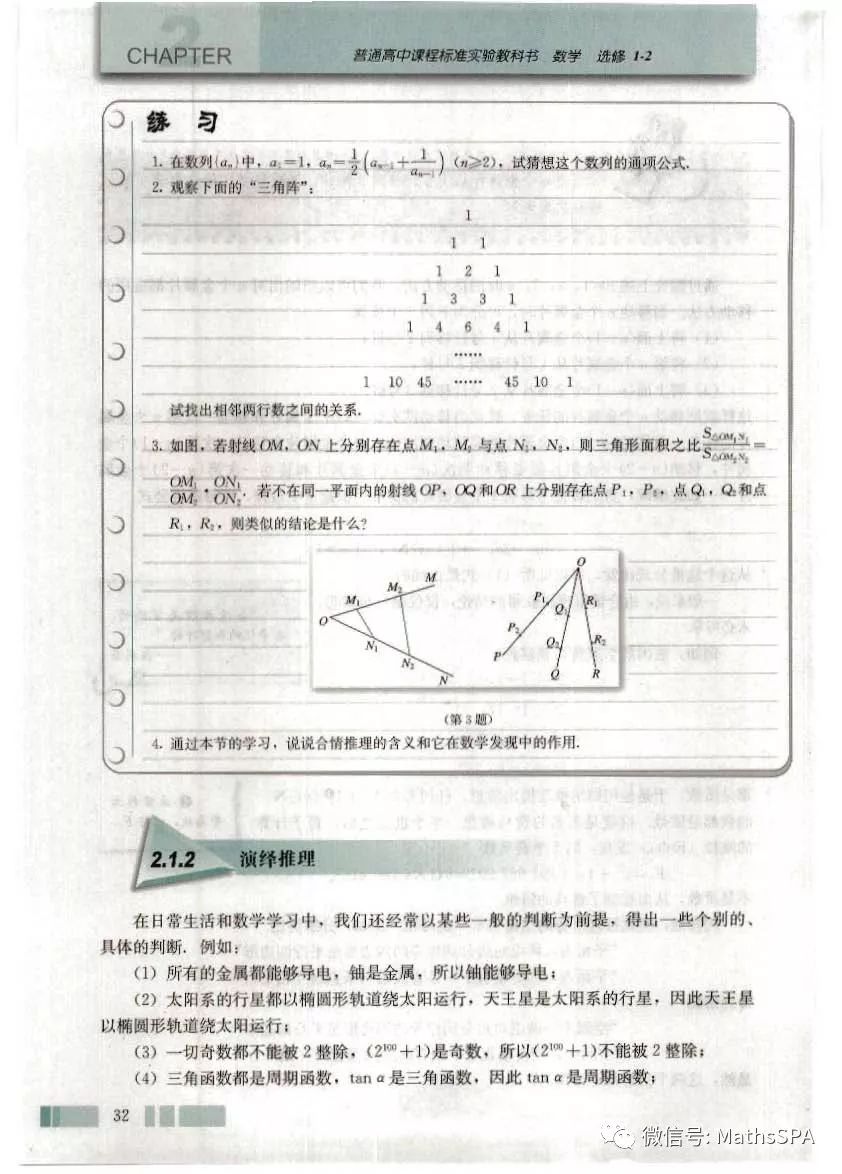 CHAPTER 2
普通高中课程标准实验教科书 数学 选修 1-2
练 习
1. 在数列{aₙ}中, a₁=1, aₙ=1/2(aₙ₋₁+1/aₙ₋₁) (n≥2), 试猜想这个数列的通项公式.
2. 观察下面的“三角阵”:
1
1 1
1 2 1
1 3 3 1
1 4 6 4 1
……
1 10 45 …… 45 10 1
试找出相邻两行数之间的关系.
3. 如图, 若射线 OM, ON 上分别存在点 M₁, M₂ 与点 N₁, N₂, 则三角形面积之比 S△OM₁N₁/S△OM₂N₂ =
OM₁/OM₂ · ON₁/ON₂. 若不在同一平面内的射线 OP, OQ 和 OR 上分别存在点 P₁, P₂, 点 Q₁, Q₂ 和点
R₁, R₂, 则类似的结论是什么?
O M₁ M₂ M N₁ N₂ N
O P₁ P₂ P Q₁ Q₂ Q R₁ R₂ R
(第 3 题)
4. 通过本节的学习, 说说合情推理的含义和它在数学发现中的作用.
2.1.2 演绎推理
在日常生活和数学学习中, 我们还经常以某些一般的判断为前提, 得出一些个别的、
具体的判断. 例如:
(1) 所有的金属都能够导电, 铀是金属, 所以铀能够导电;
(2) 太阳系的行星都以椭圆形轨道绕太阳运行, 天王星是太阳系的行星, 因此天王星
以椭圆形轨道绕太阳运行;
(3) 一切奇数都不能被 2 整除, (2¹⁰⁰+1)是奇数, 所以(2¹⁰⁰+1)不能被 2 整除;
(4) 三角函数都是周期函数, tan α 是三角函数, 因此 tan α 是周期函数;
32
微信号: MathsSPA